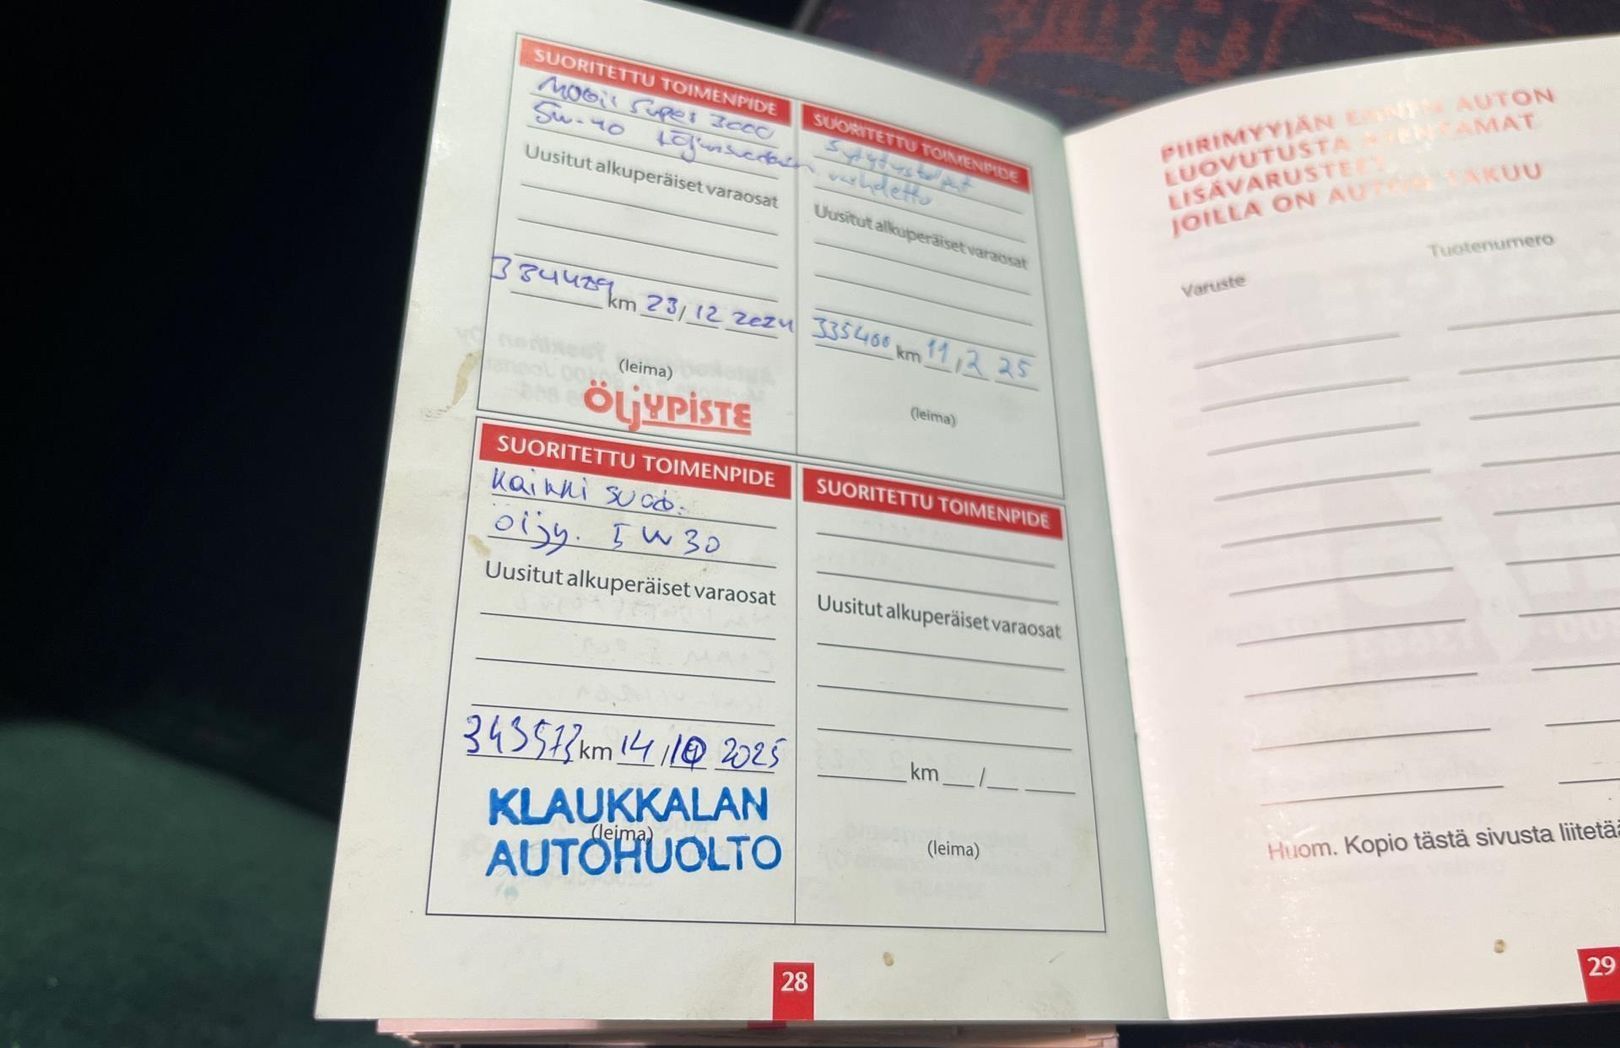 SUORITETTU TOIMENPIDE
Mobil Super 3000
5w-40
Uusitut alkuperäiset varaosat
334489 km 23/12 2024
(leima)
ÖLJYPISTE
SUORITETTU TOIMENPIDE
Sytytystulpat
vaihdettu
Uusitut alkuperäiset varaosat
335400 km 11/2 25
(leima)
SUORITETTU TOIMENPIDE
Kaikki suod.
öljy. 5W30
Uusitut alkuperäiset varaosat
343573 km 14/10 2025
(leima)
KLAUKKALAN
AUTOHUOLTO
SUORITETTU TOIMENPIDE
Uusitut alkuperäiset varaosat
km / 
(leima)
28
PIIRIMYYJÄN ENNEN AUTON
LUOVUTUSTA ASENTAMAT
LISÄVARUSTEET,
JOILLA ON AUTON TAKUU
Varuste
Tuotenumero
Huom. Kopio tästä sivusta liitetää
29